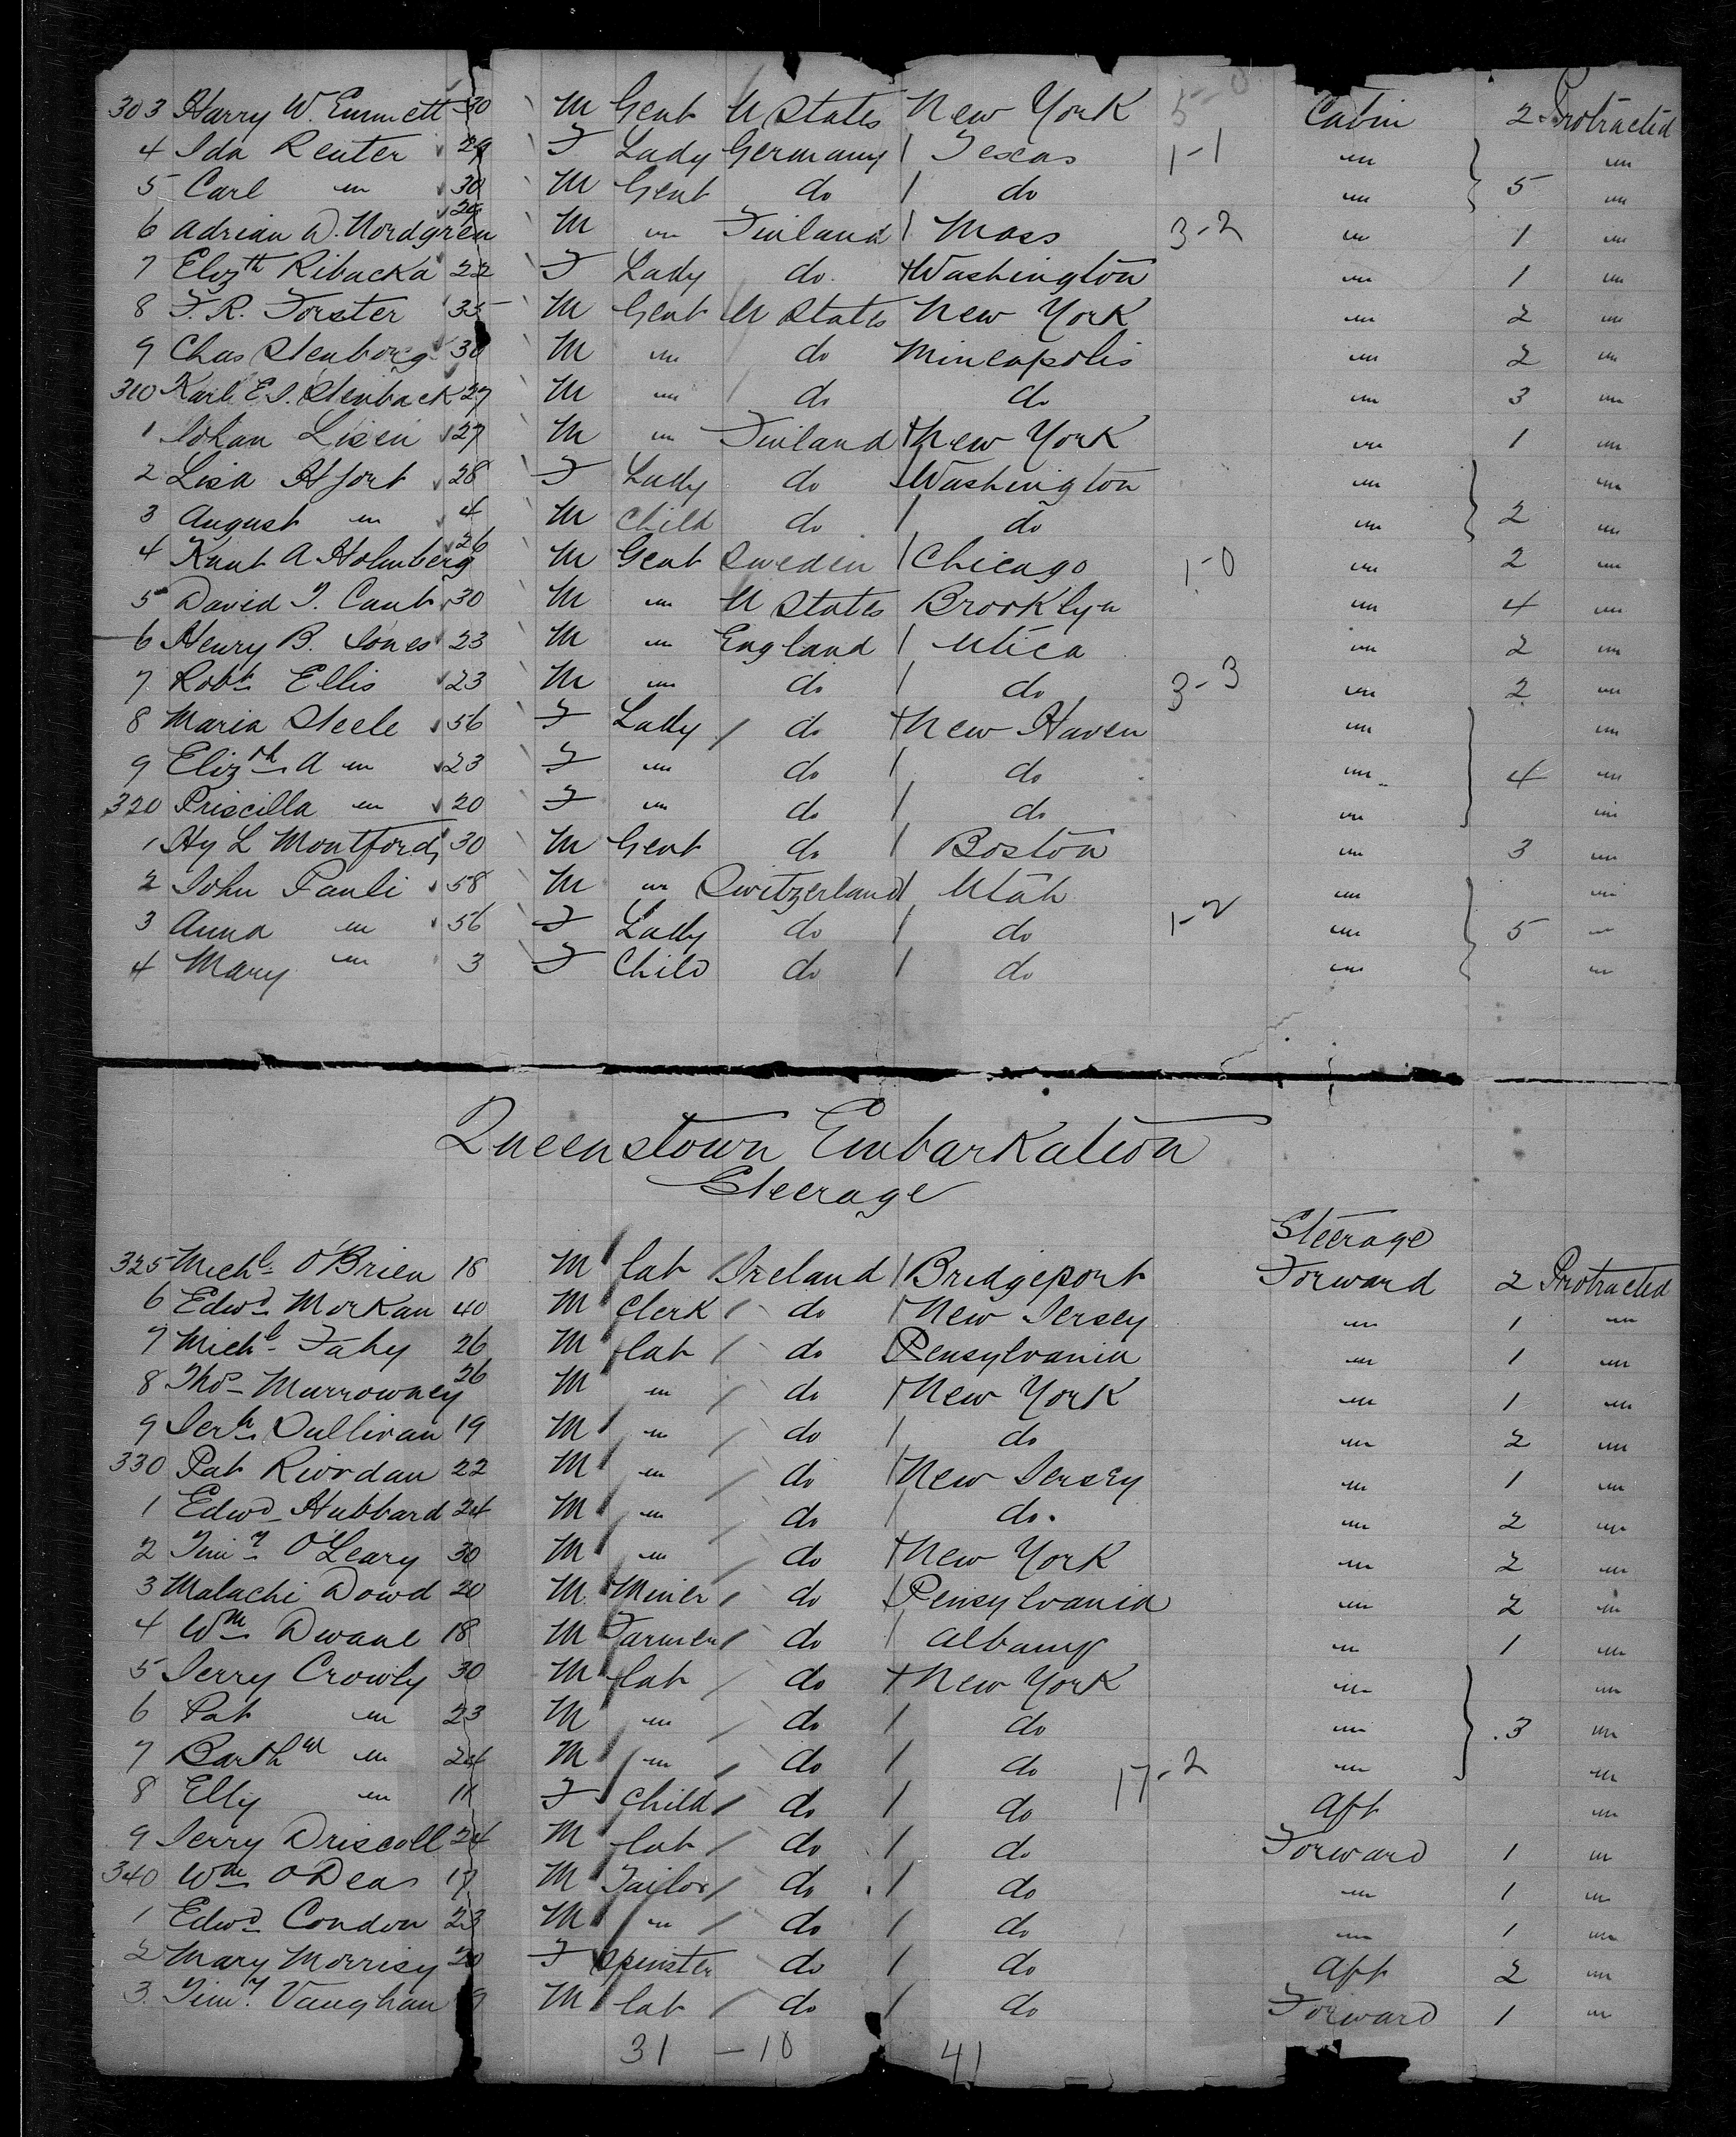 303 Harry W. Emmett 30 M Gent U States New York 5-0 Cabin 2 Protracted
4 Ida Reuter 29 F Lady Germany / Texas 1-1 " "
5 Carl " 30 M Gent do / do " 5 "
6 Adrian W. Nordgren 29 M " Finland / Mass 3-2 " 1 "
7 Elizth Ribacka 22 F Lady do. Washington " 1 "
8 F. R. Forster 35 M Gent U States New York " 2 "
9 Chas Stenborg 30 M " do Mineapolis " 2 "
310 Karl E. S. Stenback 27 M " do do " 3 "
1 Johan Lisen 27 M " Finland New York " 1 "
2 Lisa Hjort 28 F Lady do Washington " "
3 August " 4 M Child do / do " 2 "
4 Knut A Holmberg 26 M Gent Sweden / Chicago 1-0 " 2 "
5 David T. Cant 30 M " U States Brooklyn " 4 "
6 Henry B. Jones 23 M " England / Utica " 2 "
7 Robt Ellis 23 M " do / do 3-3 " 2 "
8 Maria Steele 56 F Lady / do New Haven " "
9 Elizth A " 23 F " do / do " 4 "
320 Priscilla " 20 F " do / do " "
1 Hy L Montford 30 M Gent do / Boston " 3 "
2 John Pauli 58 M " Switzerland / Utah " "
3 Anna " 56 F Lady do / do 1-2 " 5 "
4 Mary " 3 F Child do / do " "
Queenstown Embarkation
Steerage
Steerage
325 Michl O'Brien 18 M Lab / Ireland / Bridgeport Forward 2 Protracted
6 Edwd Morkan 40 M Clerk / do / New Jersey " 1 "
7 Michl Fahy 26 M Lab / do Pensylvania " 1 "
8 Thos Murrowney 26 M " / do / New York " 1 "
9 Jerh Sullivan 19 M " / do / do " 2 "
330 Pat Riordan 22 M " / do / New Jersey " 1 "
1 Edwd Hubbard 24 M " / do / do. " 2 "
2 Timy O'Leary 30 M " / do New York " 2 "
3 Malachi Dowd 20 M Miner / do / Pensylvania " 2 "
4 Wm Dwane 18 M Farmer / do / Albany " 1 "
5 Jerry Crowly 30 M Lab / do New York " "
6 Pat " 23 M " / do / do " 3 "
7 Barthw " 24 M " / do / do 17-2 " "
8 Elly " 11 F Child / do / do Aft "
9 Jerry Driscoll 24 M Lab / do / do Forward 1 "
340 Wm O'Dea 17 M Tailor / do / do " 1 "
1 Edwd Condon 23 M " / do / do " 1 "
2 Mary Morrisy 20 F Spinster do / do Aft 2 "
3. Timy Vaughan M Lab / do / do Forward 1 "
31 - 10 41